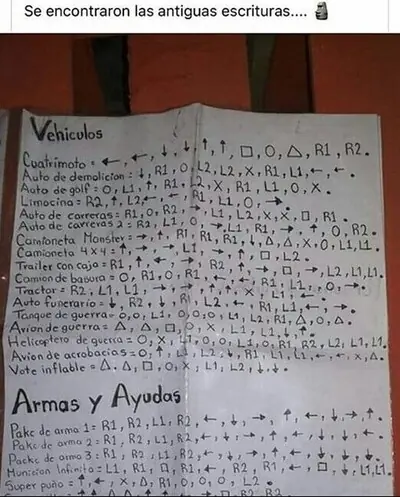 Se encontraron las antiguas escrituras.... 🗿
Vehiculos
Cuatrimoto = ←, ←, ↓, ↓, ↑, ↑, □, O, △, R1, R2.
Auto de demolicion = ↓, R1, O, L2, L2, X, R1, L1, ←, ←.
Auto de golf = O, L1, ↑, R1, L2, X, R1, L1, O, X.
Limocina = R2, ↑, L2, ←, ←, R1, L1, O, →.
Auto de carreras = R1, O, R2, →, L1, L2, X, X, □, R1.
Auto de carreras 2 = R2, L1, O, →, L1, R1, →, ↑, O, R2.
Camioneta Monster = →, ↑, R1, R1, R1, ↓, △, △, X, O, L1, L1.
Camioneta 4x4 = ↑, →, →, L1, →, ↑, □, L2.
Trailer con caja = R1, ↑, ←, →, R2, ↑, →, □, →, L2, L1, L1.
Camion de basura = O, R1, O, R1, ←, ←, R1, L1, O, →.
Tractor = R2, L1, L1, →, →, ↑, ↑, X, L1, ←.
Auto funerario = ↓, R2, ↓, R1, L2, ←, R1, L1, ←, →.
Tanque de guerra = O, O, L1, O, O, O, L1, L2, R1, △, O, △.
Avion de guerra = △, △, □, O, X, L1, L1, ↓, ↑.
Helicoptero de guerra = O, X, L1, O, O, L1, O, R1, R2, L2, L1, L1.
Avion de acrobacias = O, ↑, L1, L2, ↓, R1, L1, L1, ←, ←, X, △.
Vote inflable = △, △, □, O, X, L1, L2, ↓, ↓.
Armas y Ayudas
Pake de arma 1 = R1, R2, L1, R2, ←, ↓, →, ↑, ←, ↓, →, ↑.
Pake de arma 2 = R1, R2, L1, R2, ←, ↓, →, ↑, ←, ↓, ↓, ←.
Packe de arma 3 = R1, R2, L1, R2, ←, ↓, →, ↑, ←, ↓, ↓, ↓.
Municion Infinita = L1, R1, □, R1, ←, R2, R1, ←, □, ↓, L1, L1.
Super puño = ↑, ←, X, △, R1, O, O, O, L2.
R2 R2